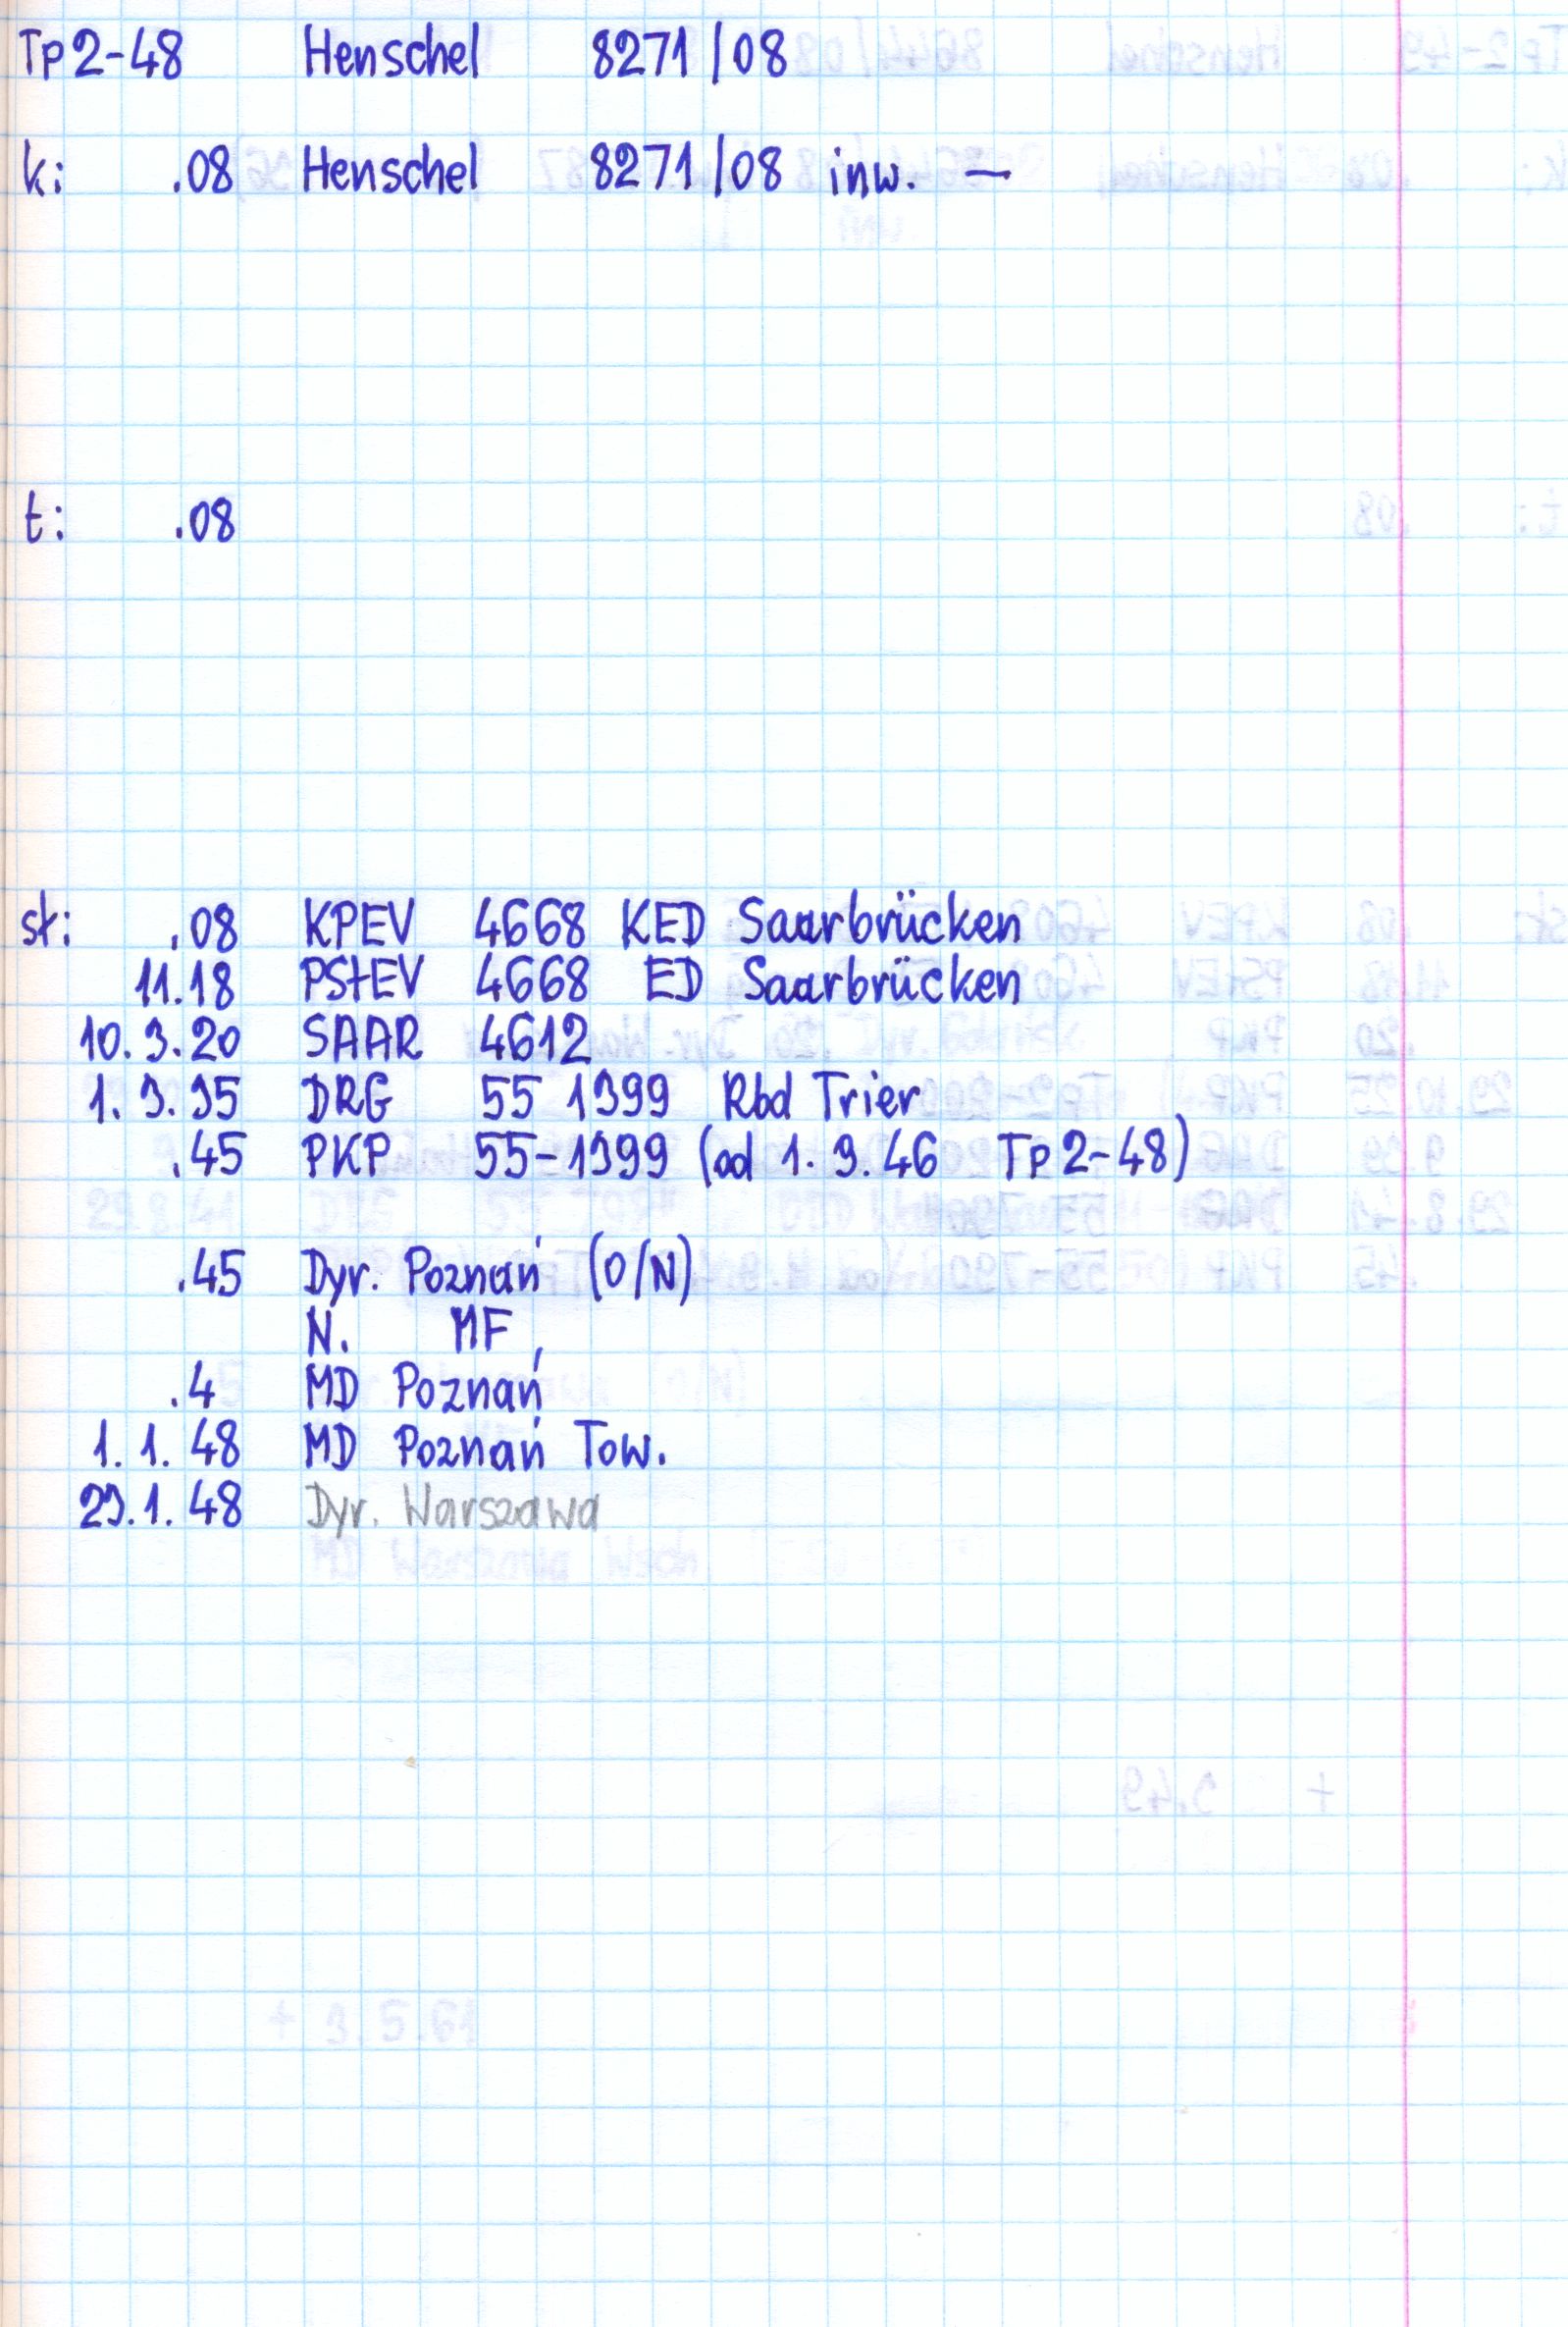 Tp2-48 Henschel 8271/08
k: .08 Henschel 8271/08 inw. —
t: .08
st: .08 KPEV 4668 KED Saarbrücken
11.18 PStEV 4668 ED Saarbrücken
10.3.20 SAAR 4612
1.3.35 DRG 55 1399 Rbd Trier
.45 PKP 55-1399 (od 1.9.46 Tp2-48)
.45 Dyr. Poznań (O/N)
N. MF,
.4 MD Poznań
1.1.48 MD Poznań Tow.
29.1.48 Dyr. Warszawa